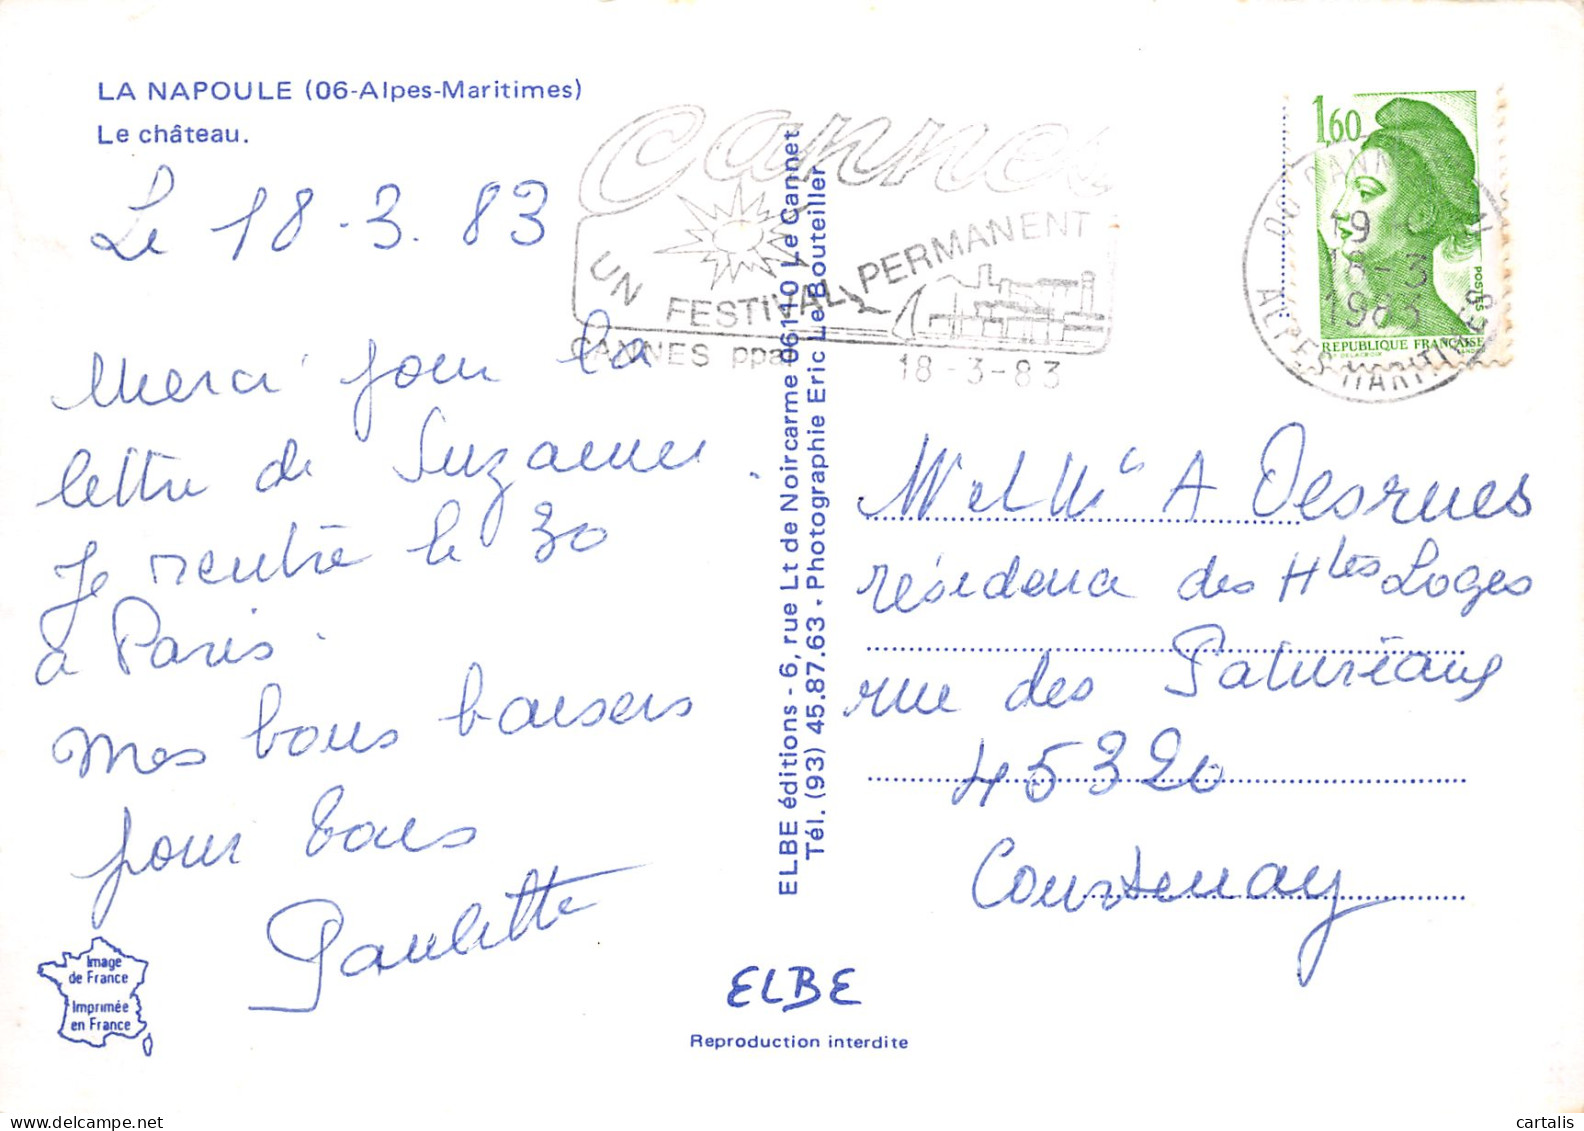 LA NAPOULE (06-Alpes-Maritimes)
Le château.
Le 18-3.83
Merci pour la
lettre de Suzanne.
Je rentre le 30
à Paris.
Mes bons baisers
pour tous
Paulette
Image
de France
Imprimée
en France
Cannes
UN FESTIVAL PERMANENT
CANNES ppal 18-3-83
ELBE éditions - 6, rue Lt de Noircarme 06110 Le Cannet
Tél. (93) 45.87.63 - Photographie Eric Le Bouteiller
1,60
POSTES
REPUBLIQUE FRANÇAISE
19
18-3
1983
ALPES MARITIMES
M et Mme A Desrues
résidence des Htes Loges
rue des Patureaux
45320
Courtenay
ELBE
Reproduction interdite
delcampe.net
cartalis